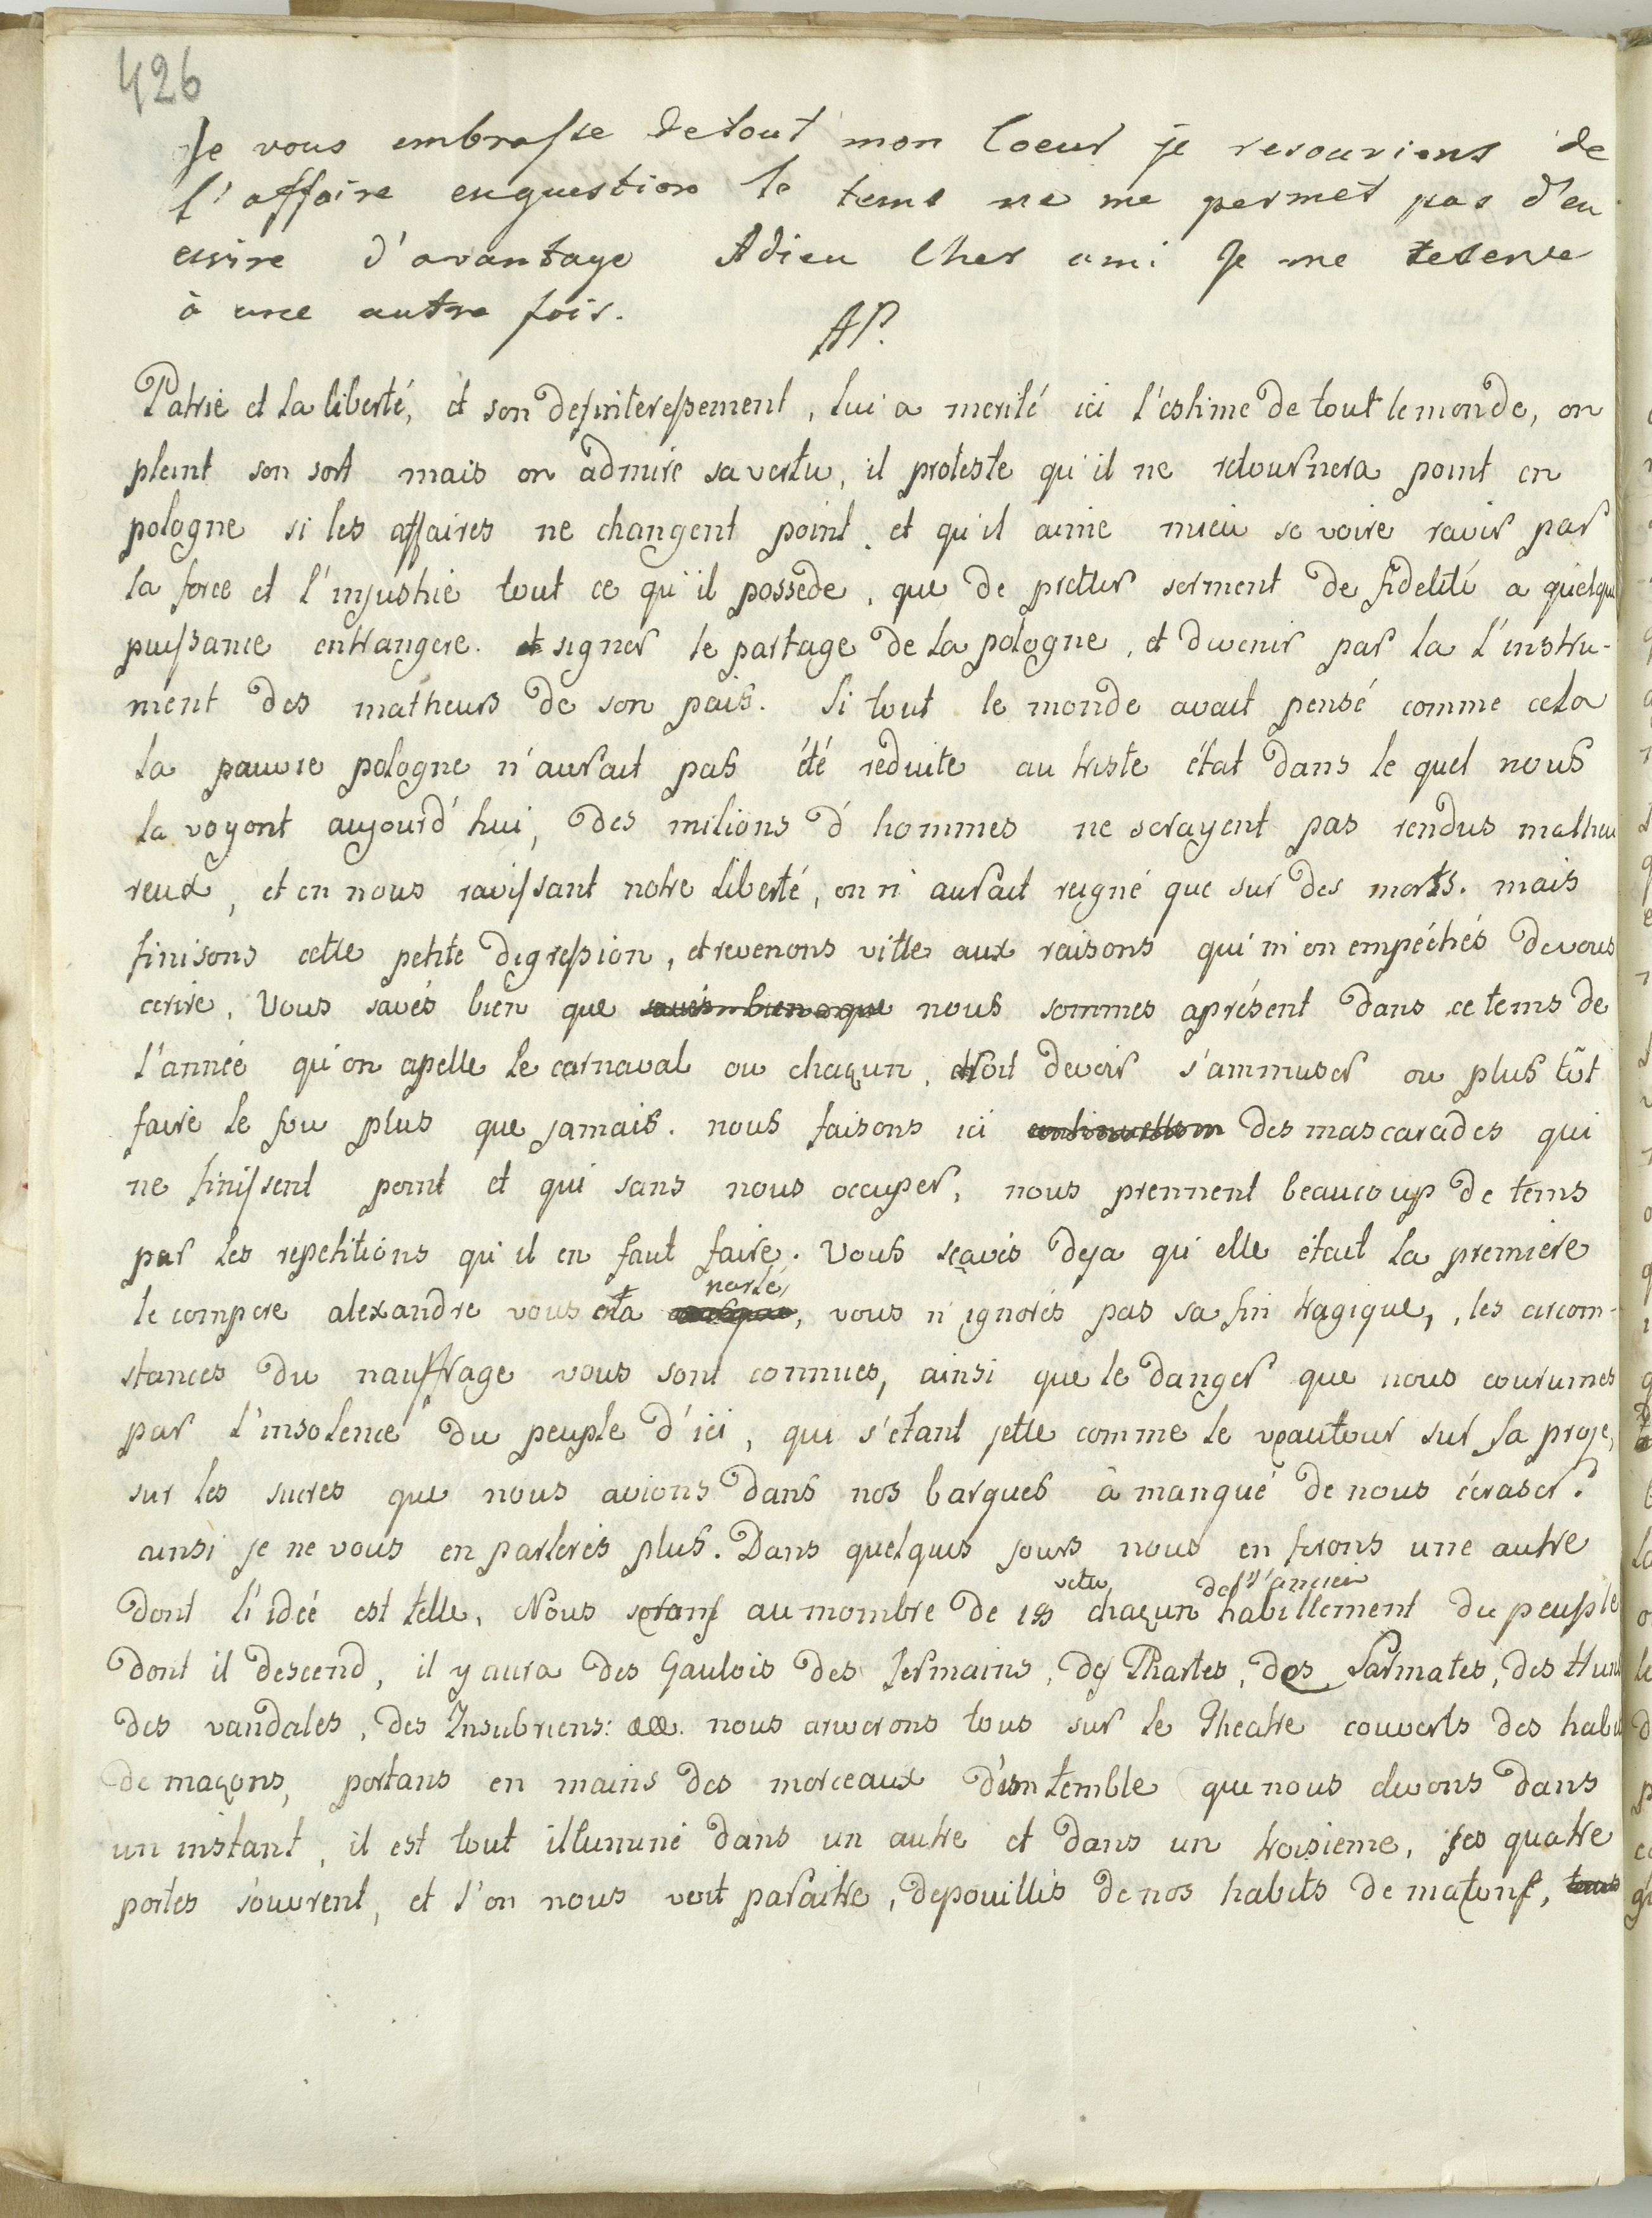 426
Je vous embrasse detout mon Coeur je resouviens de
l'affaire enquestion le tems ne me permet pas d'en
ecrire d'avantage Adieu Cher ami Je me reserve
à une autre fois. AP.
Patrie et la liberté, et son desinteressement, lui a merité ici l'estime de tout le monde, on
pleint son sort mais on admire sa vertu, il proteste qu'il ne retournera point en
pologne si les affaires ne changent point. et qu'il aime mieu se voire ravir par
la force et l'injustice tout ce qu'il possede, que de pretter serment de fidelité a quelque
puissance entrangere. et signer le partage de la pologne, et devenir par la l'instru-
ment des malheurs de son païs. Si tout le monde avait pensé comme cela
la pauvre pologne n'aurait pas été reduite au triste état dans le quel nous
la voyont aujourd'hui, des milions d'hommes ne serayent pas rendus malheu
reux, et en nous ravissant notre liberté, on n'aurait regné que sur des morts. mais
finisons cette petite digression, et revenons vitte aux raisons qui m'on empéchés de vous
ecrire. Vous savés bien que savés bien que nous sommes aprésent dans ce tems de
l'année qu'on apelle le carnaval ou chaçun, croit devoir s'ammuser ou plus tôt
faire le fou plus que jamais. nous faisons ici des mascarades qui
ne finissent point et qui sans nous occuper, nous prennent beaucoup de tems
par les repetitions qu'il en faut faire. Vous sçavés deja qu'elle était la premiere
le compere alexandre vous ota
parlé, vous n'ignorés pas sa fin tragique, les circom-
stances du nauffrage vous sont connues, ainsi que le danger que nous courumes
par l'insolence du peuple d'ici, qui s'etant jette comme le veautour sur sa proje,
sur les sucres que nous avions dans nos barques a manqué de nous écraser.
ainsi je ne vous en parlerés plus. Dans quelques jours nous en ferons une autre
dont l'idée est telle. Nous serons au nombre de 18 chaçun vetu de l'ancien habillement du peuple
dont il descend, il y aura des Gaulois des Jermains, des Phartes, des Sarmates, des Huns
des vandales, des Insubriens: &&. nous arriverons tous sur le Theatre couverts des habit
de maçons, portans en mains des morceaux d'un temble que nous elevons dans
un instant, il est tout illuminé dans un autre et dans un troisieme, ses quatre
portes s'ouvrent, et l'on nous voit paraitre, depouillés de nos habits de maçons, tous